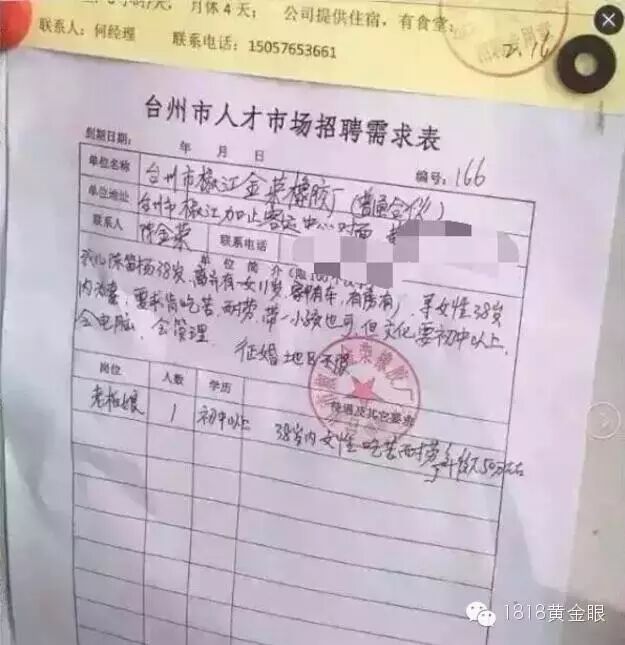 月休4天; 公司提供住宿, 有食堂;
联系人: 何经理 联系电话: 15057653661
台州市人才市场招聘需求表
到期日期: 年 月 日
编号: 166
单位名称 台州市椒江金荣橡胶厂(普通合伙)
单位地址 台州市椒江加止客运中心对面
联系人 陈金荣 联系电话
单位简介
我儿陈笛扬38岁, 离异有一女11岁, 家中有车, 有房有), 寻女性38岁
内为妻, 要求肯吃苦, 耐劳, 带一小孩也可, 但文化要初中以上,
会电脑, 会管理. 征婚地区不限
岗位 人数 学历 待遇及其它要求
老板娘 1 初中以上 38岁内女性吃苦耐劳
1818黄金眼